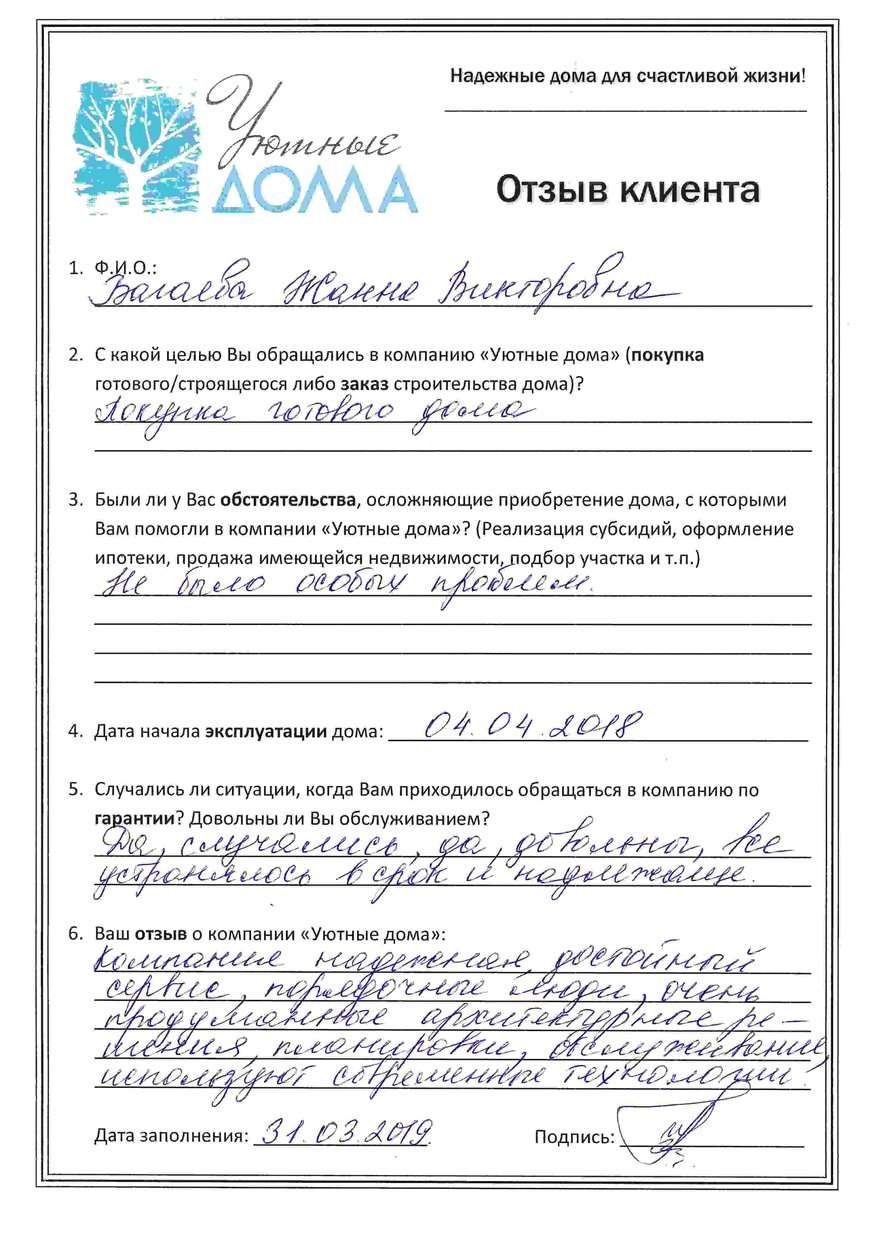 Надежные дома для счастливой жизни!
Уютные
ДОМА
Отзыв клиента
1. Ф.И.О.:
Вагаева Жанна Викторовна
2. С какой целью Вы обращались в компанию «Уютные дома» (покупка
готового/строящегося либо заказ строительства дома)?
Покупка готового дома
3. Были ли у Вас обстоятельства, осложняющие приобретение дома, с которыми
Вам помогли в компании «Уютные дома»? (Реализация субсидий, оформление
ипотеки, продажа имеющейся недвижимости, подбор участка и т.п.)
Не было особых проблем.
4. Дата начала эксплуатации дома: 04.04.2018
5. Случались ли ситуации, когда Вам приходилось обращаться в компанию по
гарантии? Довольны ли Вы обслуживанием?
Да, случались, да, довольны, все
устранялось в срок и надлежаще.
6. Ваш отзыв о компании «Уютные дома»:
Компания надежная, достойный
сервис, порядочные люди, очень
продуманные архитектурные ре-
шения, планировки, обслуживание,
используют современные технологии.
Дата заполнения: 31.03.2019. Подпись: